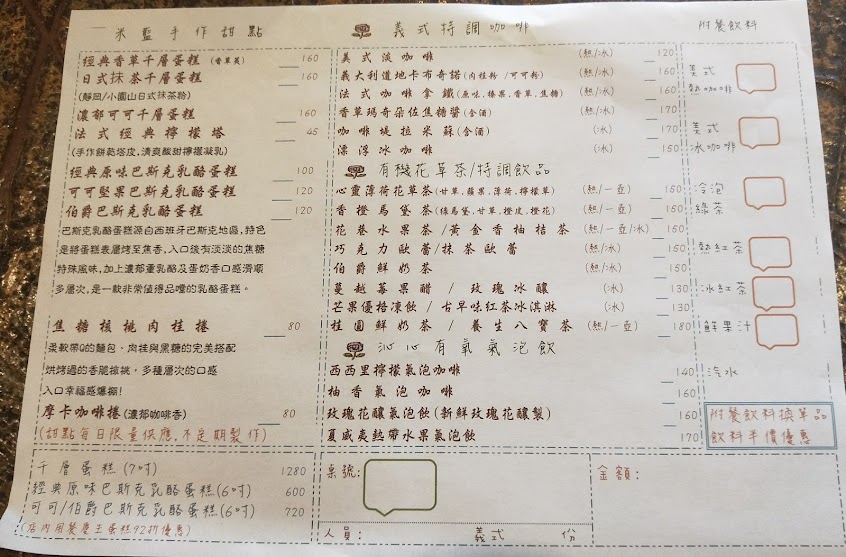 米藍手作甜點
經典香草千層蛋糕 (香草莢) 160
日式抹茶千層蛋糕 160
(靜岡/小圓山日式抹茶粉)
濃郁可可千層蛋糕 160
法式經典檸檬塔 45
(手作餅乾塔皮,清爽酸甜檸檬凝乳)
經典原味巴斯克乳酪蛋糕 100
可可堅果巴斯克乳酪蛋糕 120
伯爵巴斯克乳酪蛋糕 120
巴斯克乳酪蛋糕源自西班牙巴斯克地區,特色
是將蛋糕表層烤至焦香,入口後有淡淡的焦糖
特殊風味,加上濃郁重乳酪及蛋奶香口感滑順
多層次,是一款非常值得品嚐的乳酪蛋糕。
焦糖核桃肉桂捲 80
柔軟帶Q的麵包、肉桂與黑糖的完美搭配
烘烤過的香脆核桃,多種層次的口感
入口幸福感爆棚!
摩卡咖啡捲(濃郁咖啡香) 80
(甜點每日限量供應,不定期製作)
千層蛋糕(7吋) 1280
經典原味巴斯克乳酪蛋糕(6吋) 600
可可/伯爵巴斯克乳酪蛋糕(6吋) 720
(店內用餐慶生蛋糕92折優惠)
義式特調咖啡
美式淡咖啡 (熱/冰) 120
義大利道地卡布奇諾(肉桂粉/可可粉) (熱/冰) 160
法式咖啡拿鐵(原味,榛果,香草,焦糖) (熱/冰) 160
香草瑪奇朵佐焦糖醬(含酒) (熱/冰) 170
咖啡堤拉米蘇(含酒) (冰) 170
漂浮冰咖啡 (冰) 150
有機花草茶/特調飲品
心靈薄荷花草茶(甘草,蘋果,薄荷,檸檬草) (熱/一壺) 150
香橙馬黛茶(綠馬黛,甘草,橙皮,橙花) (熱/一壺) 150
花巷水果茶/黃金香柚桔茶 (熱/一壺/冰) 160
巧克力歐蕾/抹茶歐蕾 (熱/冰) 150
伯爵鮮奶茶 (熱/冰) 150
蔓越莓果醋/玫瑰冰釀 (冰) 130
芒果優格凍飲/古早味紅茶冰淇淋 (冰) 130
桂圓鮮奶茶/養生八寶茶 (熱/一壺) 180
沁心有氧氣泡飲
西西里檸檬氣泡咖啡 140
柚香氣泡咖啡 160
玫瑰花釀氣泡飲(新鮮玫瑰花釀製) 160
夏威夷熱帶水果氣泡飲 170
桌號:
人員: 義式 份
附餐飲料
美式
熱咖啡
美式
冰咖啡
冷泡
綠茶
熱紅茶
冰紅茶
鮮果汁
汽水
附餐飲料換單品
飲料半價優惠
金額: